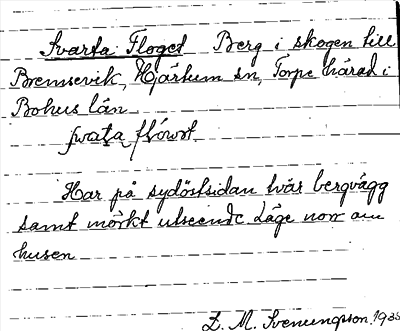 Svarta Floget Berg i skogen till
Bremsevik, Hjärtum sn, Torpe härad i
Bohus län
svaʈa flówət
Har på sydöstsidan tvär bergvägg
samt mörkt utseende Läge norr om
husen
D. M. Svenungsson 1933